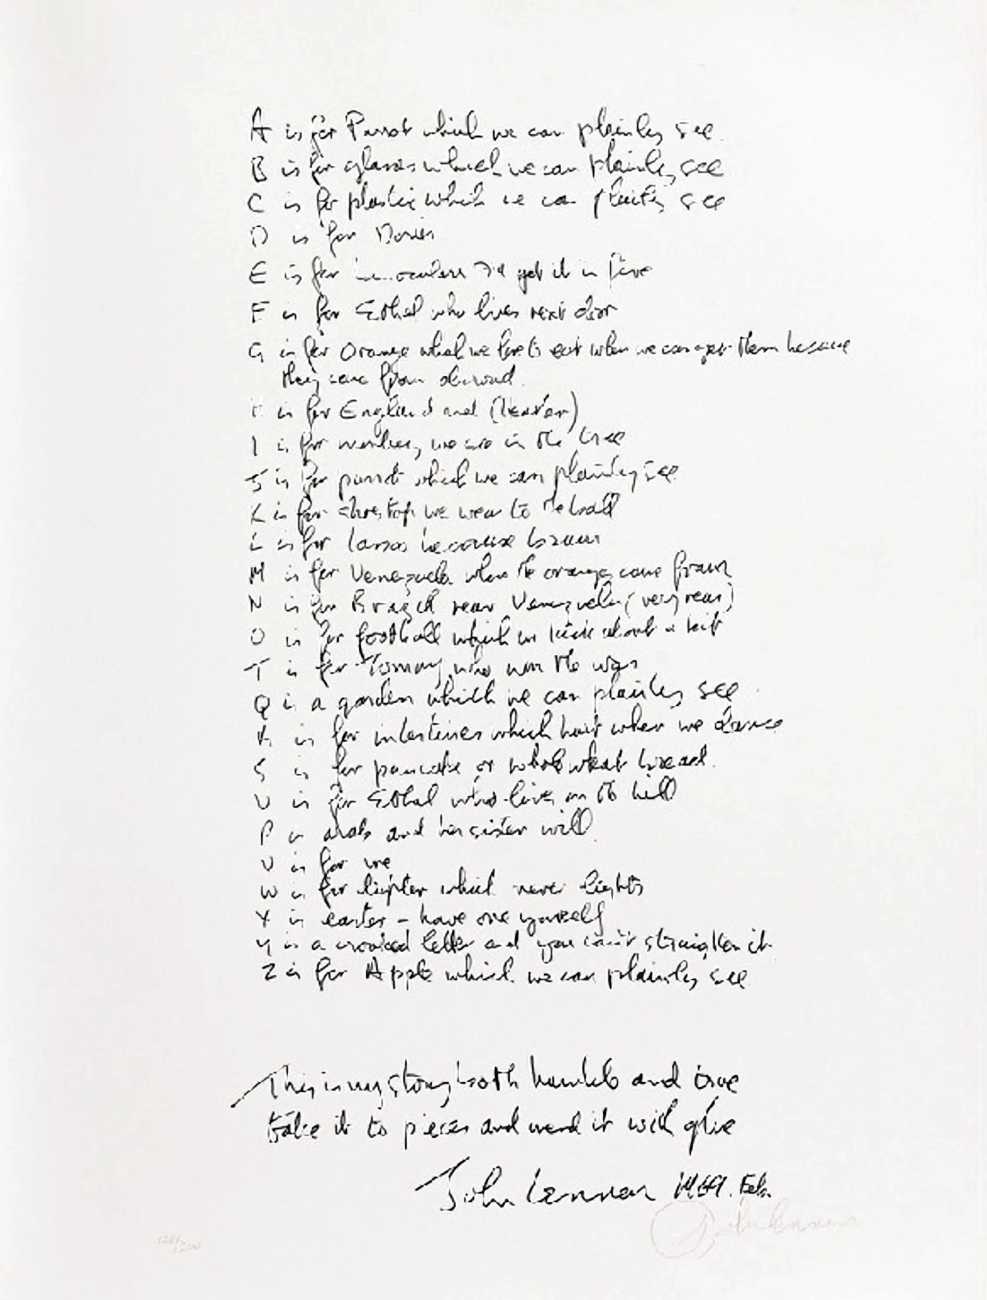 A is for Parrot which we can plainly see
B is for glasses which we can plainly see
C is for plastic which we can plainly see
D is for Doris
E is for binoculars I'll get it in five
F is for Ethel who lives next door
G is for Orange which we love to eat when we can get them because
they come from abroad.
H is for England and (Heather)
I is for monkey we see in the tree
J is for parrot which we can plainly see
K is for shoetop we wear to the ball
L is for Lassoo because brown
M is for Venezuela where the oranges come from
N is for Brazil near Venezuela (very near)
O is for football which we kick about a bit
T is for Tommy who won the war
Q is a garden which we can plainly see
R is for intestines which hurt when we dance
S is for pancake or whole wheat bread.
U is for Ethel who lives on the hill
P is arab and her sister will
V is for me
W is for lighter which never lights
X is easter - have one yourself
Y is a crooked letter and you can't straighten it
Z is for Apple which we can plainly see
This is my story both humble and true
take it to pieces and mend it with glue
John Lennon 1969. Feb.